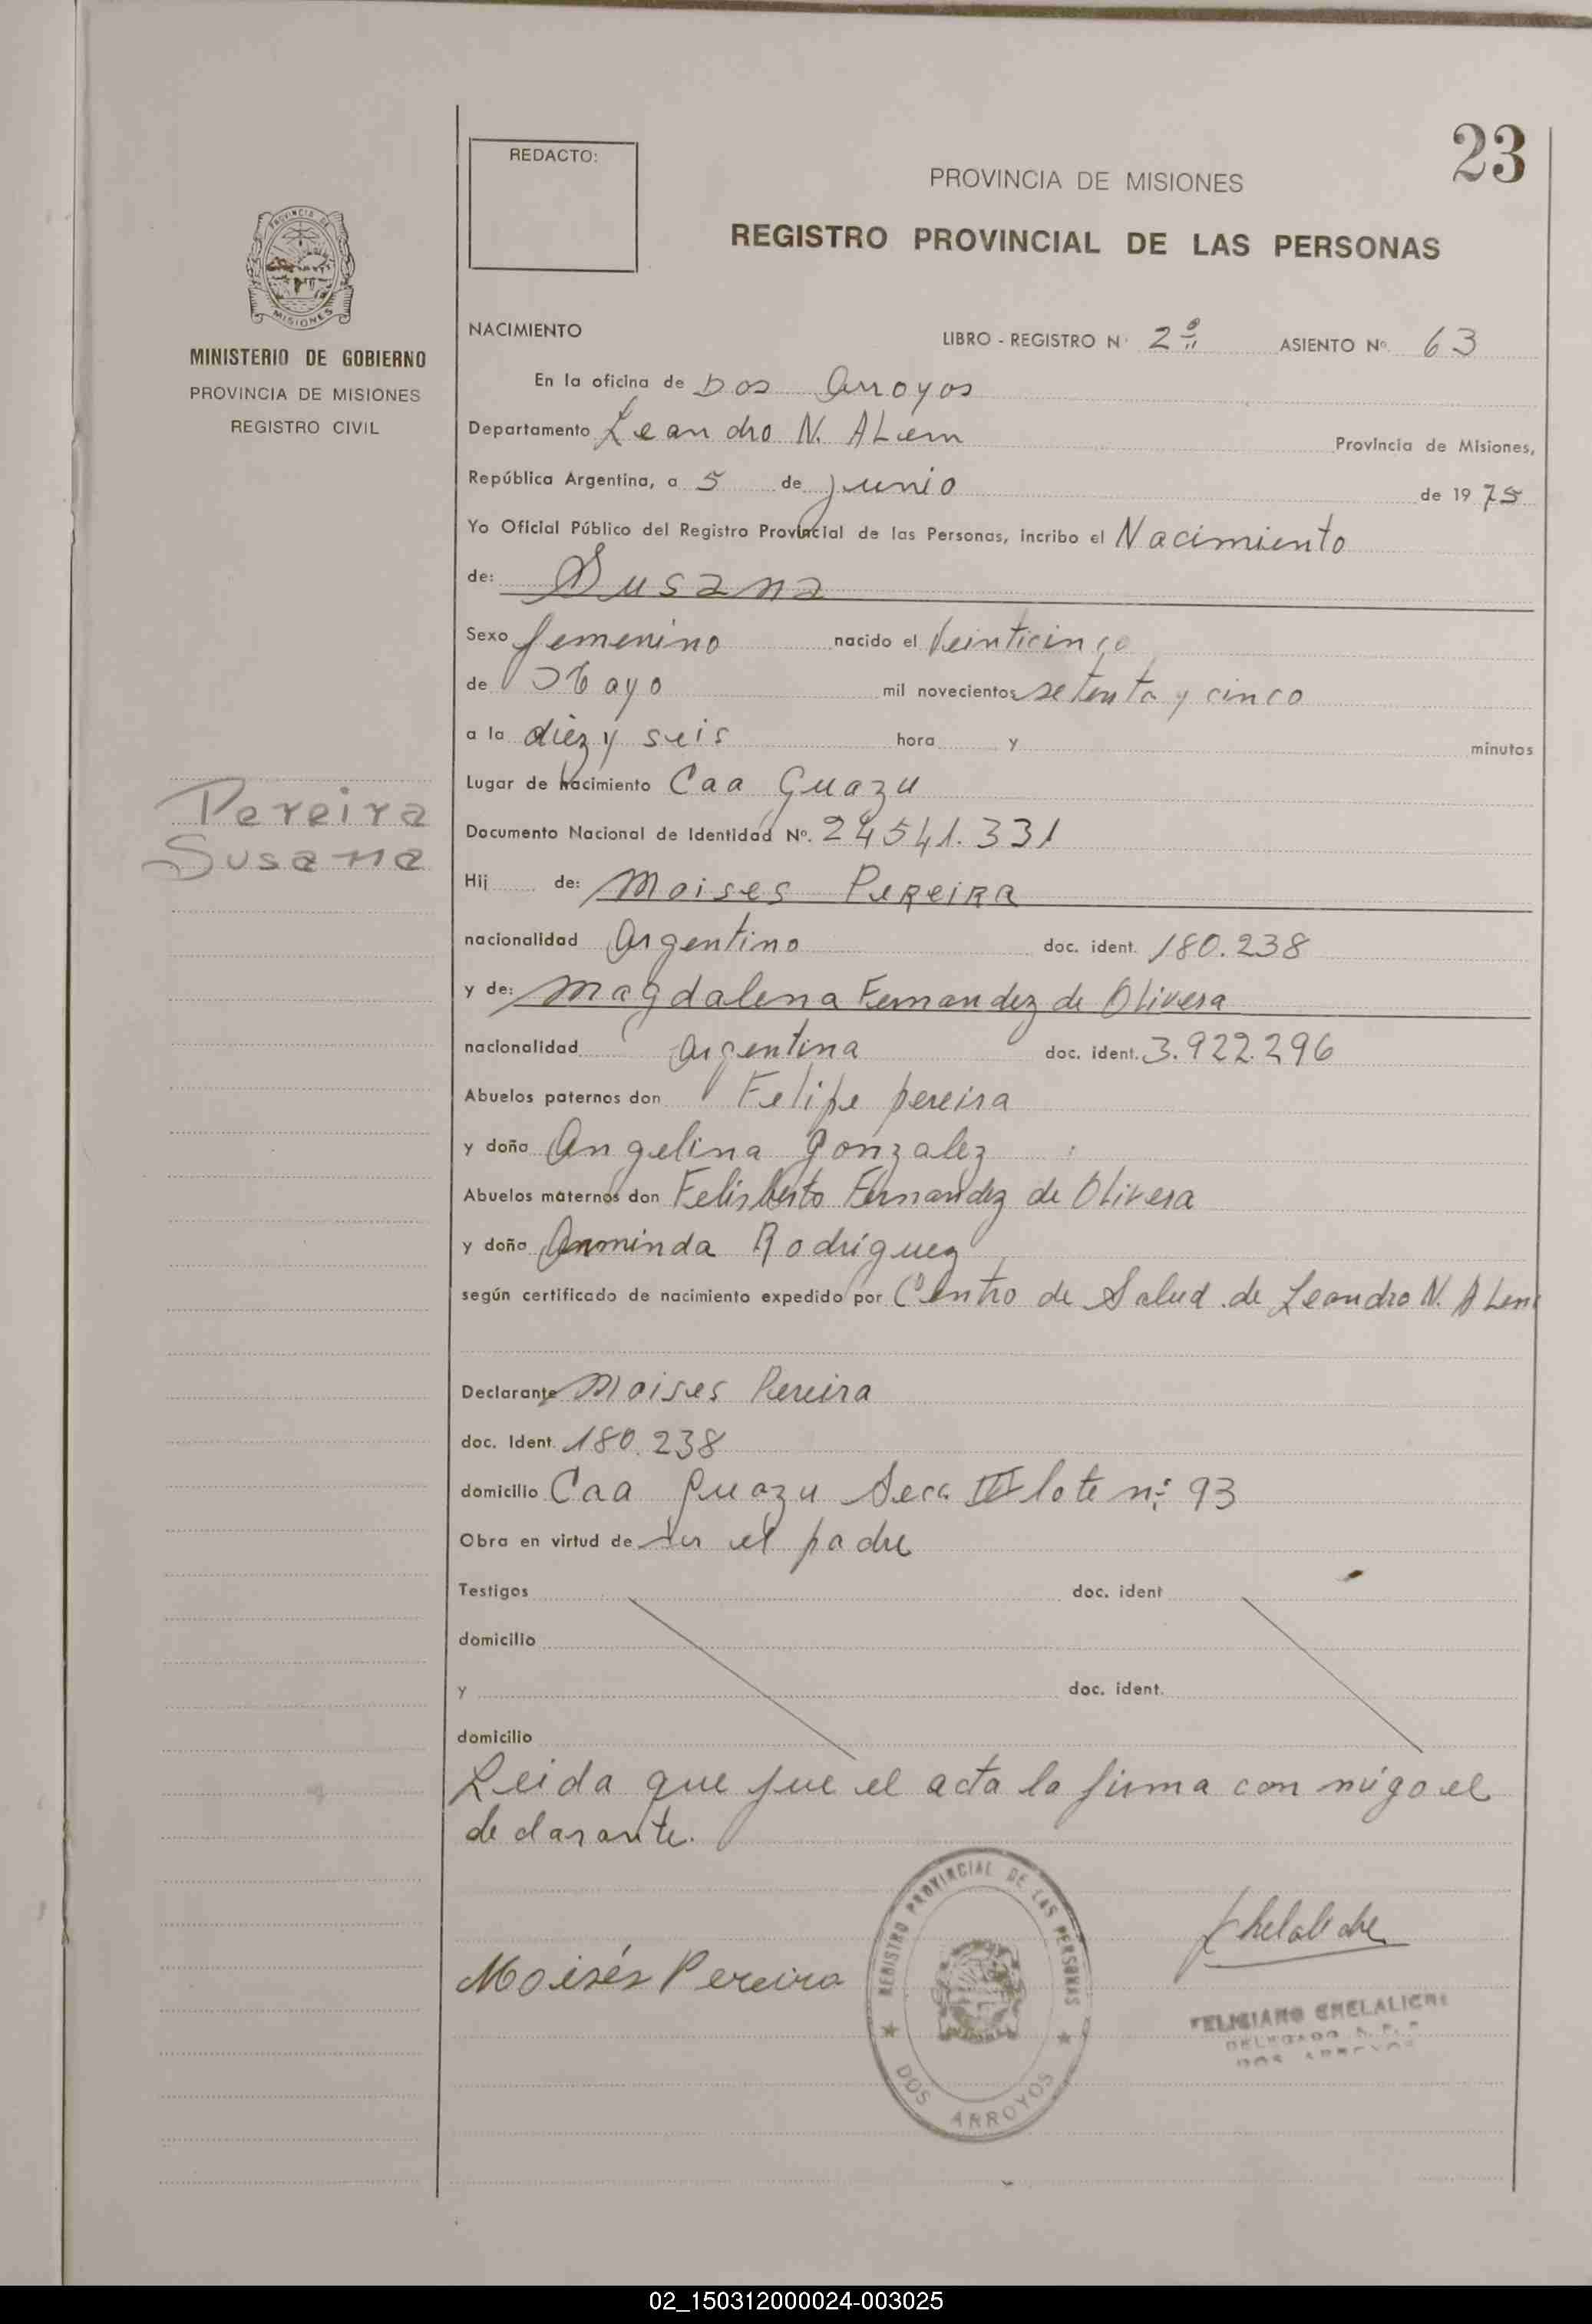 23
REDACTO:
PROVINCIA DE MISIONES
REGISTRO PROVINCIAL DE LAS PERSONAS
PROVINCIA DE
MISIONES
MINISTERIO DE GOBIERNO
PROVINCIA DE MISIONES
REGISTRO CIVIL
NACIMIENTO LIBRO - REGISTRO Nº 2º ASIENTO Nº 63
En la oficina de Dos Arroyos
Departamento Leandro N. ALem Provincia de Misiones,
República Argentina, a 5 de junio de 1975
Yo Oficial Público del Registro Provincial de las Personas, incribo el Nacimiento
de: Susana
Sexo femenino nacido el Veinticinco
de Mayo mil novecientos setenta y cinco
a la diez y seis hora y minutos
Lugar de nacimiento Caa Guazu
Pereira
Susana
Documento Nacional de Identidad Nº. 24541.331
Hij de: Moises Pereira
nacionalidad Argentino doc. ident. 180.238
y de: Magdalena Fernandez de Olivera
nacionalidad Argentina doc. ident. 3.922.296
Abuelos paternos don Felipe pereira
y doña Angelina Gonzalez
Abuelos maternos don Felisberto Fernandez de Olivera
y doña Arminda Rodriguez
según certificado de nacimiento expedido por Centro de Salud de Leandro N. ALem
Declarante Moises Pereira
doc. Ident. 180.238
domicilio Caa Guazu Secc III lote nº 93
Obra en virtud de ser el padre
Testigos doc. ident
domicilio
y doc. ident.
domicilio
Leida que fue el acta la firma con migo el
declarante.
Moisés Pereira
REGISTRO PROVINCIAL DE LAS PERSONAS
DOS ARROYOS
FELICIANO CHELALICHE
DELEGADO R. P. P.
DOS ARROYOS
02_150312000024-003025